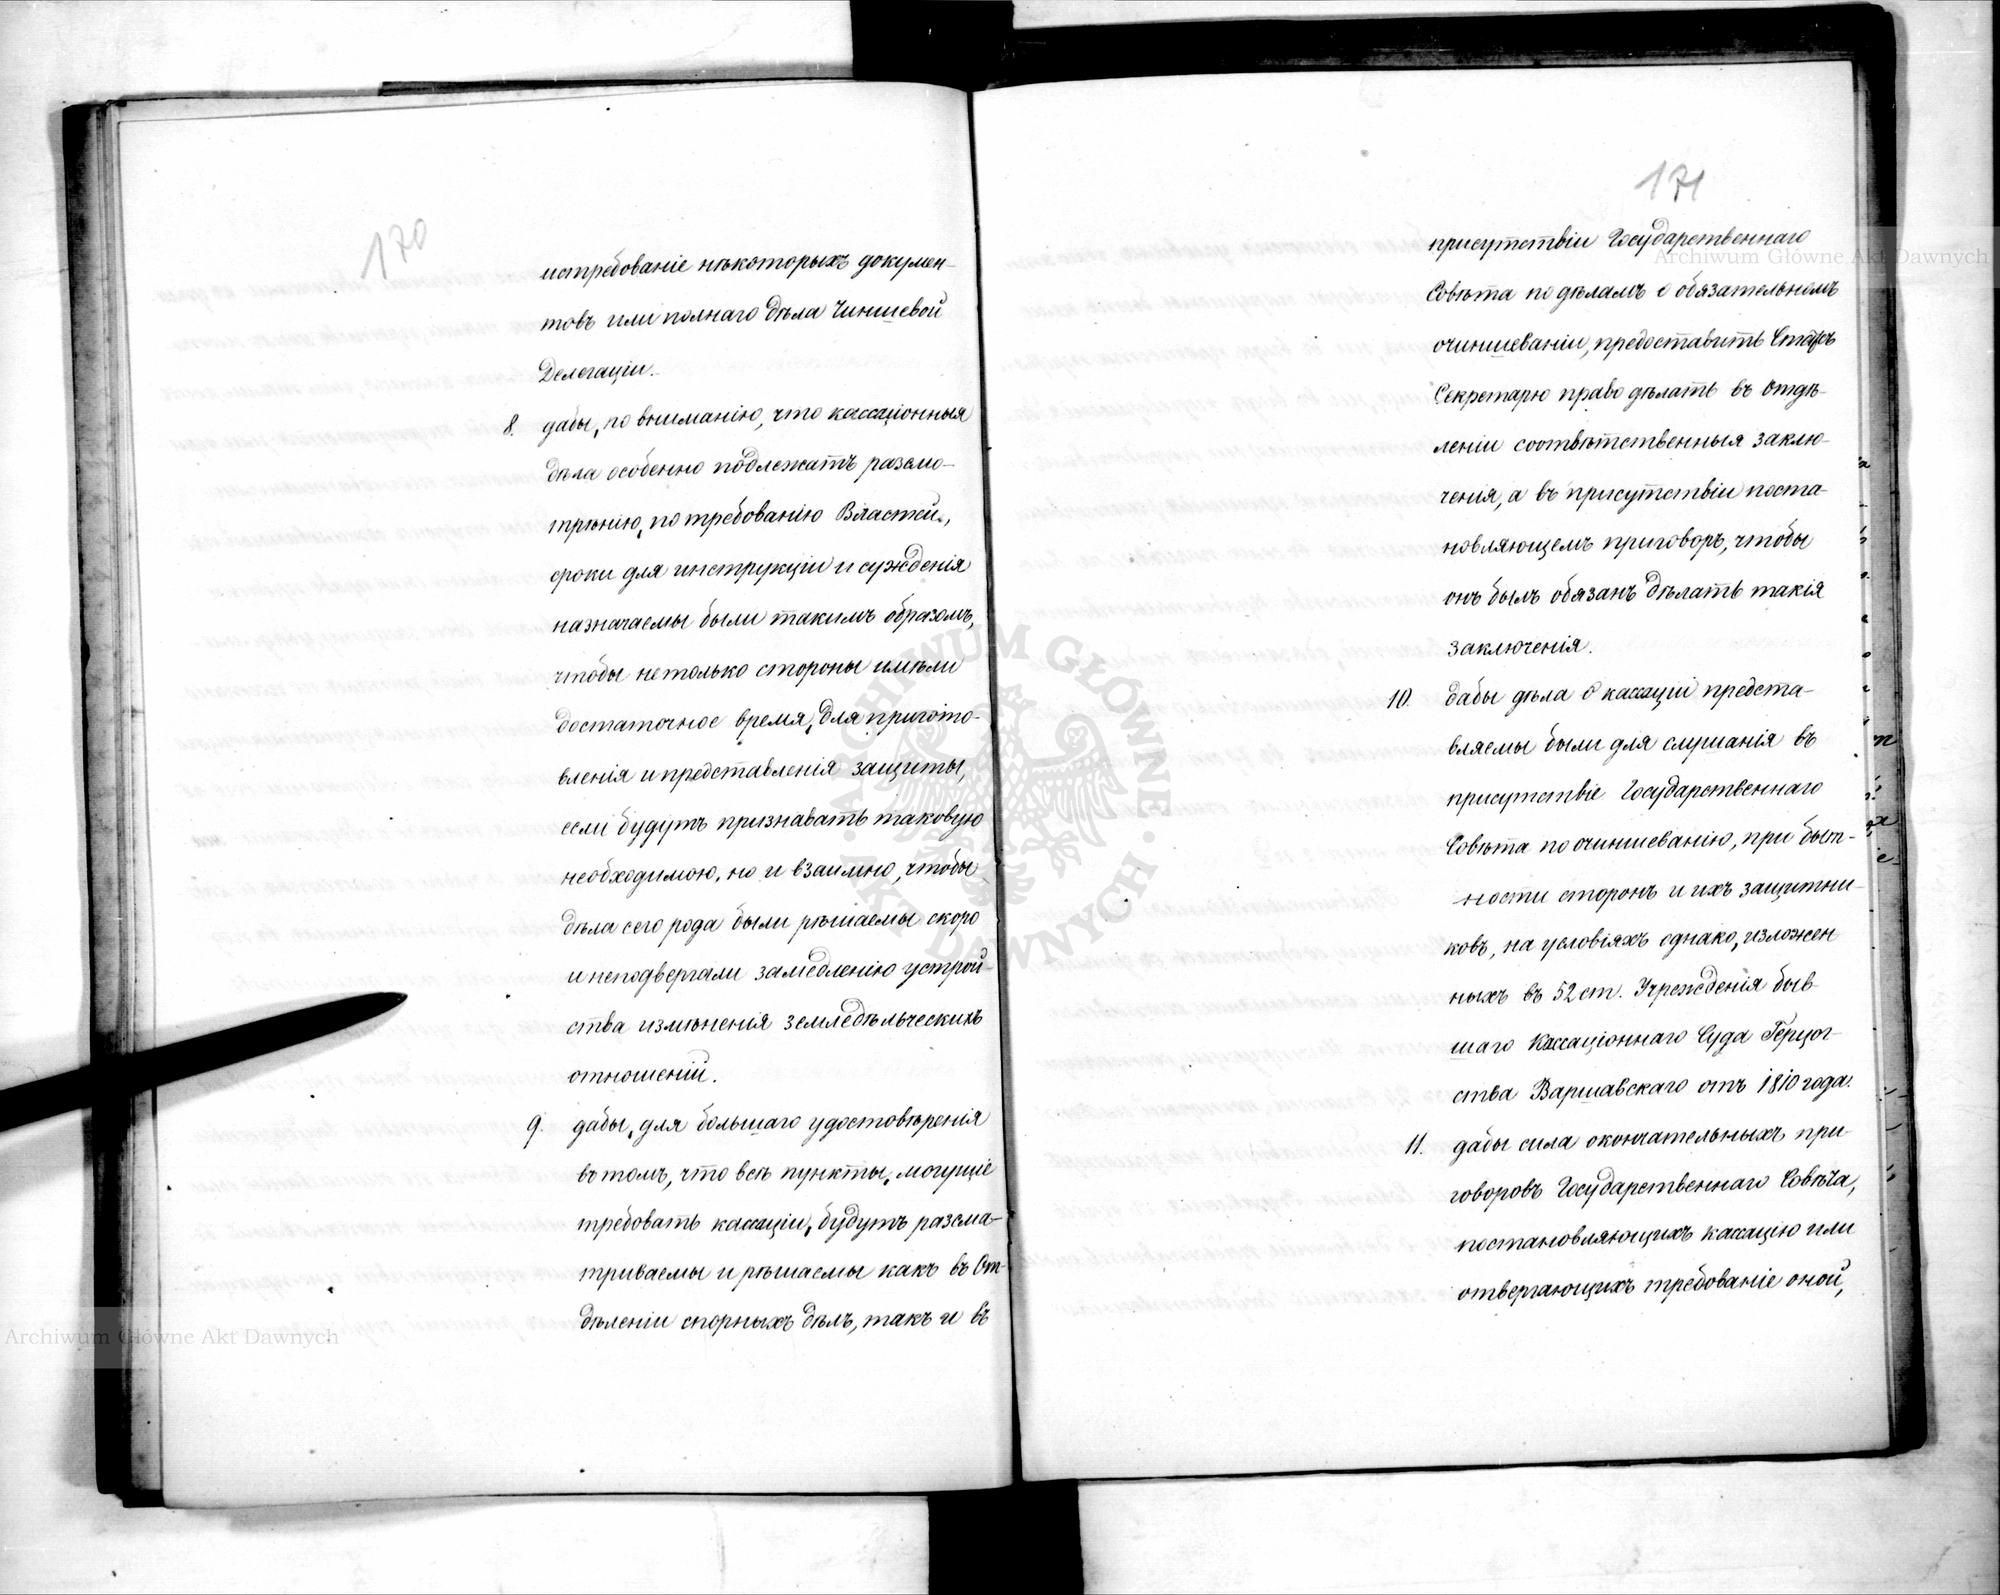 170
истребованіе нѣкоторыхъ докумен-
товъ или полнаго дѣла Чиншевой
Делегаціи.
8. дабы, по вниманію, что кассаціонныя
дѣла особенно подлежатъ разсмо-
трѣнію, по требованію Властей,
сроки для инструкціи и сужденія
назначаемы были такимъ образомъ,
чтобы не только стороны имѣли
достаточное время, для пригото-
вленія и представленія защиты,
если будутъ признавать таковую
необходимою, но и взаимно, чтобы
дѣла сего рода были рѣшаемы скоро
и неподвергали замедленію устрой-
ства измѣненія земледѣльческихъ
отношеній.
9. дабы, для большаго удостовѣренія
въ томъ, что всѣ пункты, могущіе
требовать кассаціи, будутъ разсма-
триваемы и рѣшаемы какъ въ От-
дѣленіи спорныхъ дѣлъ, такъ и въ
171
присутствіи Государственнаго
Совѣта по дѣламъ о обязательномъ
очиншеваніи, предоставить Статсъ
Секретарю право дѣлать въ Отдѣ-
леніи соотвѣтственныя заклю-
ченія, а въ присутствіи поста-
новляющемъ приговоръ, чтобы
онъ былъ обязанъ дѣлать такія
заключенія.
10. дабы дѣла о кассаціи предста-
вляемы были для слушанія въ
присутствіе Государственнаго
Совѣта по очиншеванію, при быт-
ности сторонъ и ихъ защитни-
ковъ, на условіяхъ однако, изложен
ныхъ въ 52 ст. Учрежденія быв-
шаго Кассаціоннаго Суда Герцог-
ства Варшавскаго отъ 1810 года.
11. дабы сила окончательныхъ при-
говоровъ Государственнаго Совѣта,
постановляющихъ кассацію или
отвергающихъ требованіе оной,
Archiwum Główne Akt Dawnych
Archiwum Główne Akt Dawnych
ARCHIWUM GŁÓWNE
AKT DAWNYCH